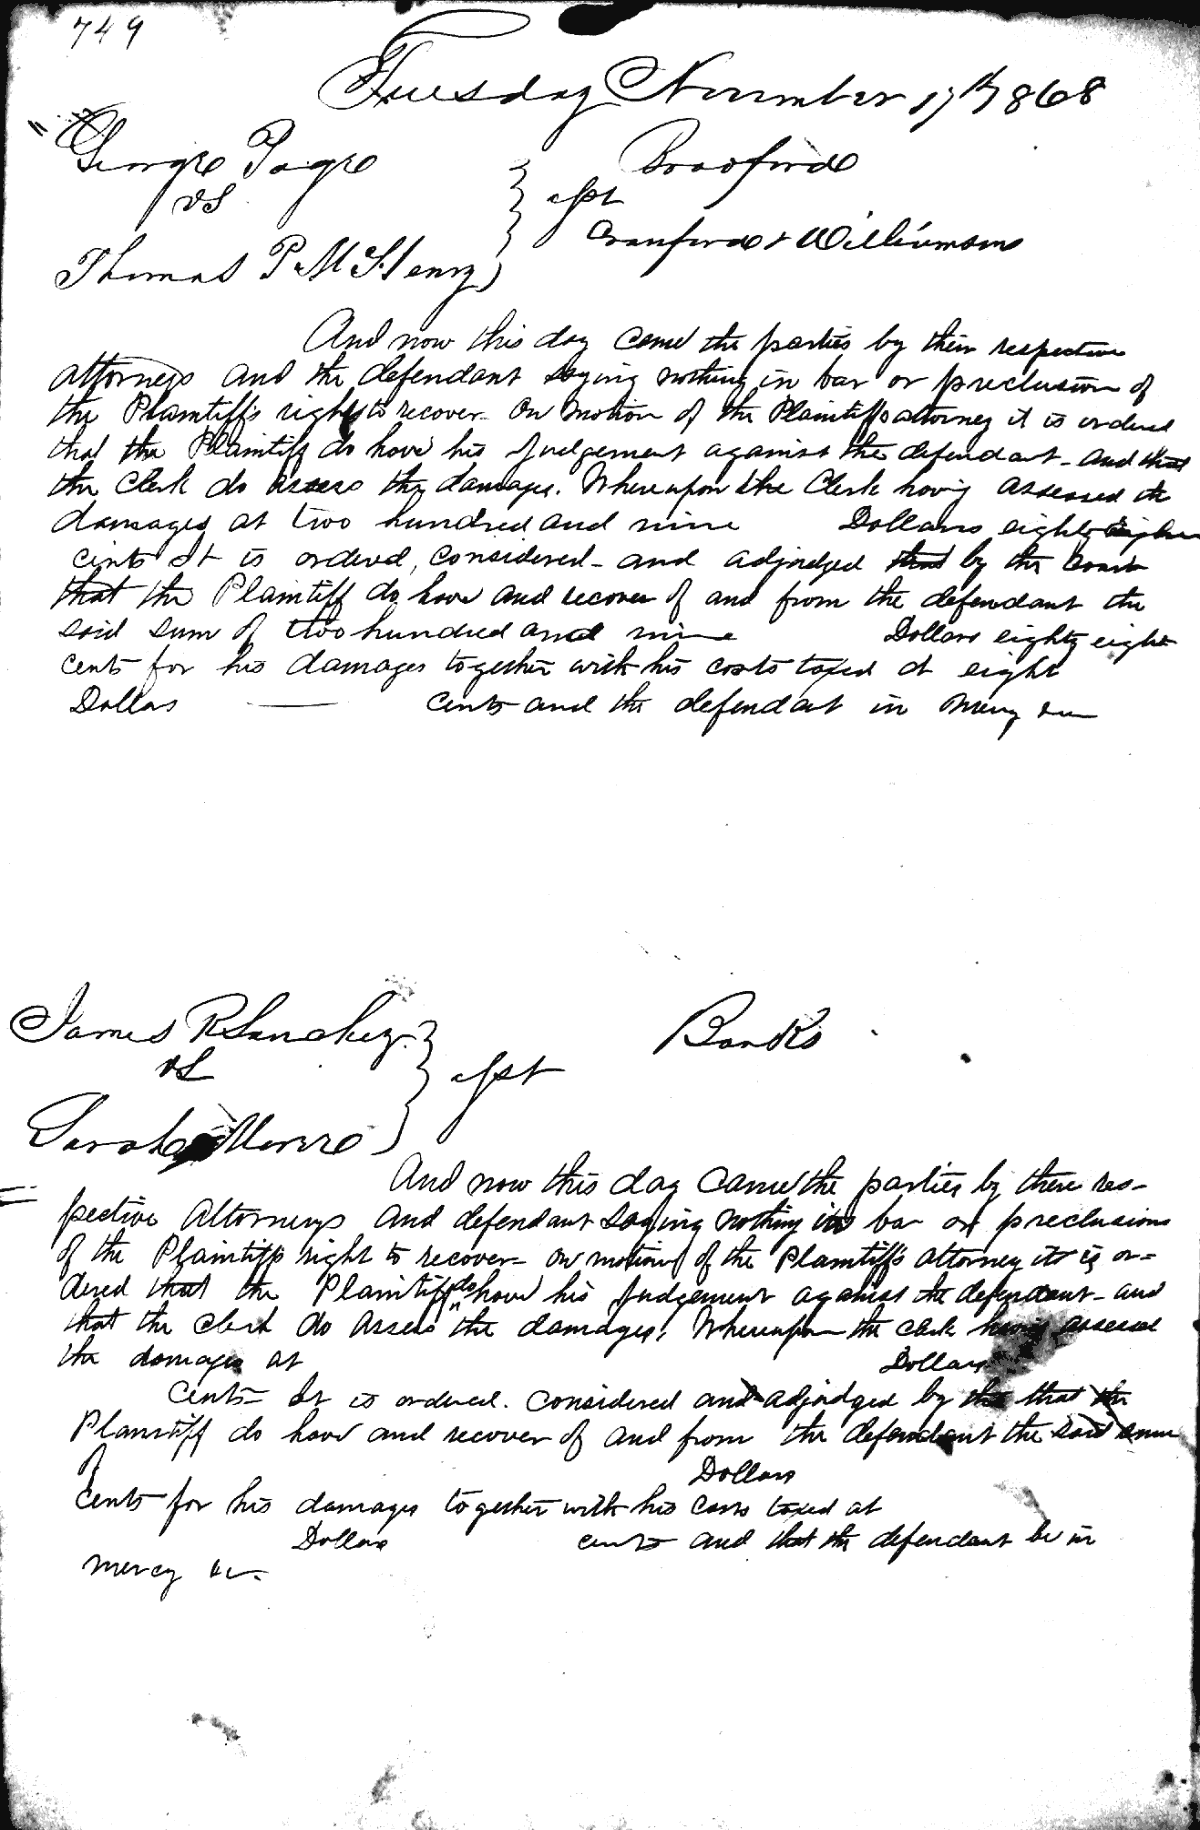 749
Tuesday November 17th 1868
George Page } Bradford
vs } apt
Thomas P. McHenry } Crawford & Williamson
And now this day came the parties by their respective
attorneys and the defendant saying nothing in bar or preclusion of
the Plaintiffs rights to recover. On motion of the Plaintiffs attorney it is ordered
that the Plaintiff do have his Judgement against the defendant - and that
the Clerk do assess the damages. Whereupon the Clerk having assessed the
damages at two hundred and nine Dollars eighty eight
cents It is ordered, considered - and adjudged that by the Court
that the Plaintiff do have and recover of and from the defendant the
said sum of two hundred and nine Dollars eighty eight
cents for his damages together with his costs taxed at eight
Dollars —— cents and the defendant in mercy &c
James R Sanchez } Banks
vs } apt
Sarah }
And now this day came the parties by there res-
pective Attorneys and defendant saying nothing in bar or preclusions
of the Plaintiffs right to recover - on motion of the Plaintiffs attorney it is or=
dered that the Plaintiff do have his Judgement against the defendant - and
that the clerk do assess the damages, Whereupon the clerk having assessed
the damages at Dollars
cents = It is ordered. considered and adjudged by the that the
Plaintiff do have and recover of and from the defendant the said sum
of Dollars
cents for his damages together with his costs taxed at
Dollars cents and that the defendant be in
mercy &c.